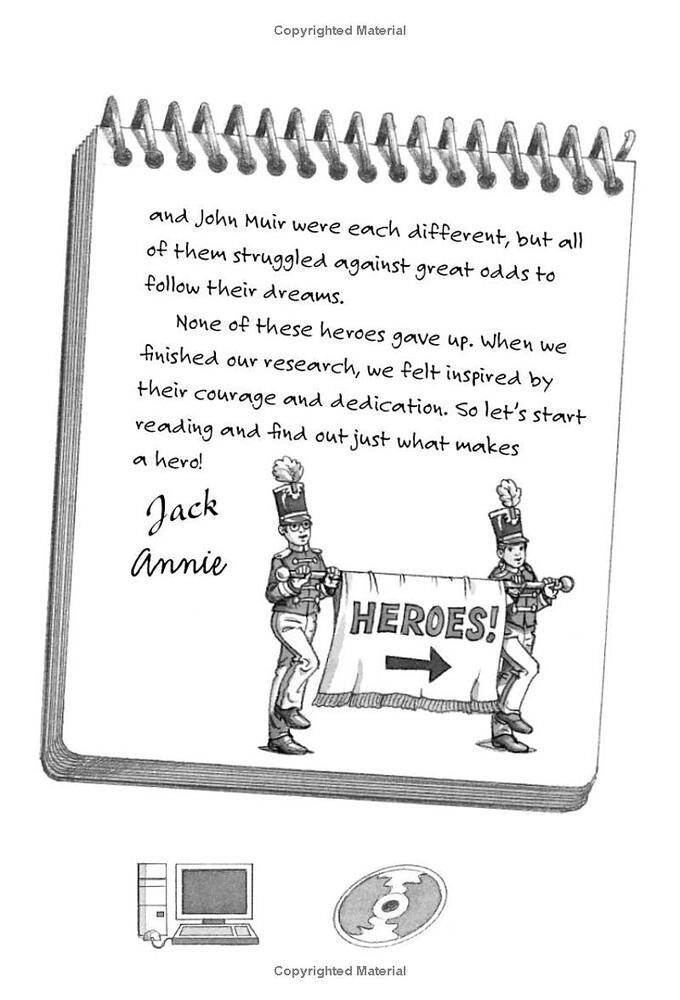 Copyrighted Material
and John Muir were each different, but all
of them struggled against great odds to
follow their dreams.
None of these heroes gave up. When we
finished our research, we felt inspired by
their courage and dedication. So let's start
reading and find out just what makes
a hero!
Jack
Annie
HEROES!
Copyrighted Material